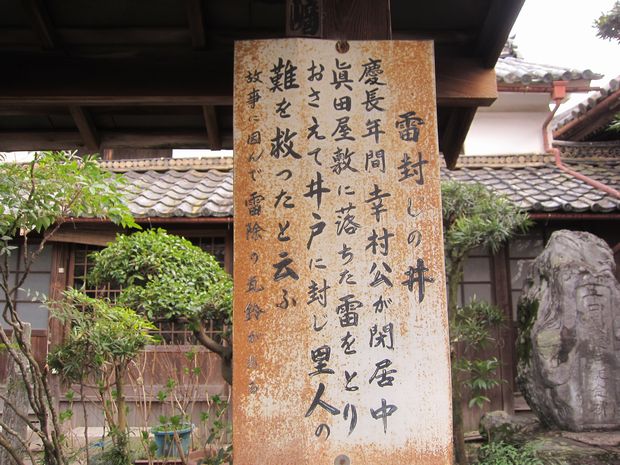 雷封しの井
慶長年間幸村公が閉居中
眞田屋敷に落ちた雷をとり
おさえて井戸に封し里人の
難を救ったと云ふ
故事に因んで雷除の瓦鈴がある